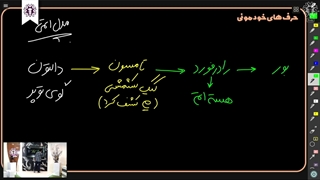 حرف های خودمونی
مدل اتمی
دالتون → تامسون → رادرفورد → بور
گوی توپر
کیک کشمشی
(e کشف کرد)
هسته اتم